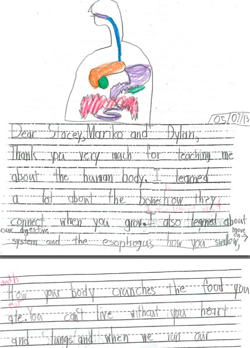 05/07/13
Dear Stacey, Mariko and Dylan,
Thank you very much for teaching me
about the human body. I learned
a lot about the bones how they
connect when you grow. I also learned about
our digestive
system and the esophogus how you swallow
move
How your body crunches the food you
ate. You can't live without you heart
and lungs and when we run our